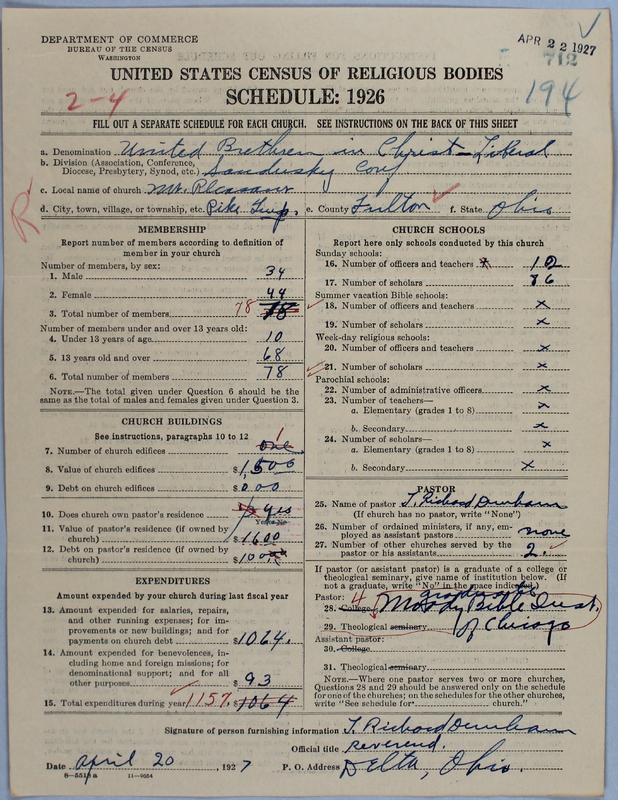 DEPARTMENT OF COMMERCE
BUREAU OF THE CENSUS
WASHINGTON
APR 22 1927
712
194
2-4
R
UNITED STATES CENSUS OF RELIGIOUS BODIES
SCHEDULE: 1926
FILL OUT A SEPARATE SCHEDULE FOR EACH CHURCH. SEE INSTRUCTIONS ON THE BACK OF THIS SHEET
a. Denomination United Brethren in Christ - Liberal
b. Division (Association, Conference,
Diocese, Presbytery, Synod, etc.) Sandusky Conf
c. Local name of church Mt. Pleasant
d. City, town, village, or township, etc. Pike Twp. e. County Fulton f. State Ohio
MEMBERSHIP
Report number of members according to definition of
member in your church
Number of members, by sex:
1. Male 34
2. Female 44
3. Total number of members 78 78
Number of members under and over 13 years old:
4. Under 13 years of age 10
5. 13 years old and over 68
6. Total number of members 78
NOTE.—The total given under Question 6 should be
the same as the total of males and females given under Question 3.
CHURCH BUILDINGS
See instructions, paragraphs 10 to 12
7. Number of church edifices one 1
8. Value of church edifices $1,500
9. Debt on church edifices $000
10. Does church own pastor's residence yes
Yes or No
11. Value of pastor's residence (if owned by
church) $1600
12. Debt on pastor's residence (if owned by
church) $100
EXPENDITURES
Amount expended by your church during last fiscal year
13. Amount expended for salaries, repairs,
and other running expenses; for im-
provements or new buildings; and for
payments on church debt $1064.
14. Amount expended for benevolences, in-
cluding home and foreign missions; for
denominational support; and for all
other purposes $93
15. Total expenditures during year 1157. $1064
CHURCH SCHOOLS
Report here only schools conducted by this church
Sunday schools:
16. Number of officers and teachers 12
17. Number of scholars 76
Summer vacation Bible schools:
18. Number of officers and teachers x
19. Number of scholars x
Week-day religious schools:
20. Number of officers and teachers x
21. Number of scholars x
Parochial schools:
22. Number of administrative officers x
23. Number of teachers—
a. Elementary (grades 1 to 8) x
b. Secondary x
24. Number of scholars—
a. Elementary (grades 1 to 8) x
b. Secondary x
PASTOR
25. Name of pastor T. Richard Dunham
(If church has no pastor, write "None")
26. Number of ordained ministers, if any, em-
ployed as assistant pastors none
27. Number of other churches served by the
pastor or his assistants 2.
If pastor (or assistant pastor) is a graduate of a college or
theological seminary, give name of institution below. (If
not a graduate, write "No" in the space indicated)
Pastor: 4 graduate of
28. College Moody Bible Inst.
29. Theological seminary of Chicago
Assistant pastor:
30. College
31. Theological seminary
NOTE.—Where one pastor serves two or more churches,
Questions 28 and 29 should be answered only on the schedule
for one of the churches; on the schedules for the other churches,
write "See schedule for church."
Signature of person furnishing information T. Richard Dunham
Official title Reverend.
Date April 20, 1927 P. O. Address Delta, Ohio.
8-5513a 11-9554